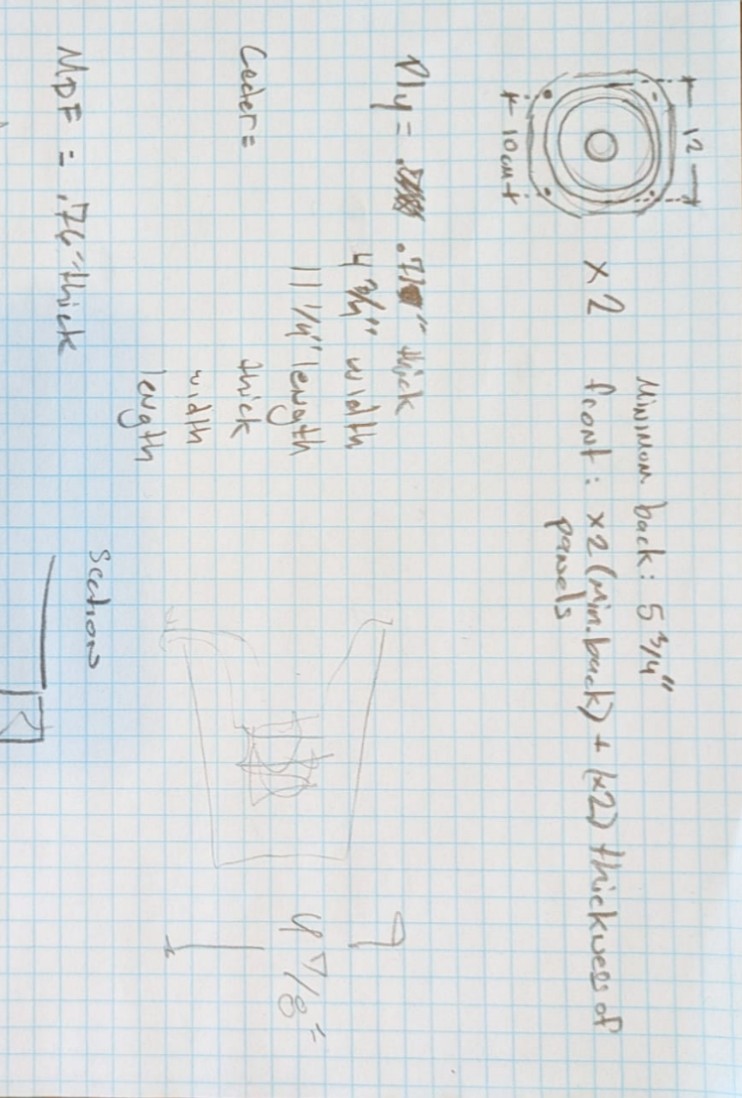 12
10cm
x2
Minimum back: 5 3/4"
front: x2 (min. back) + (x2) thickness of
panels
Ply = .71" thick
4 3/4" width
11 1/4" length
Ceder =
thick
width
length
MDF = .76" thick
Section
4 7/8"